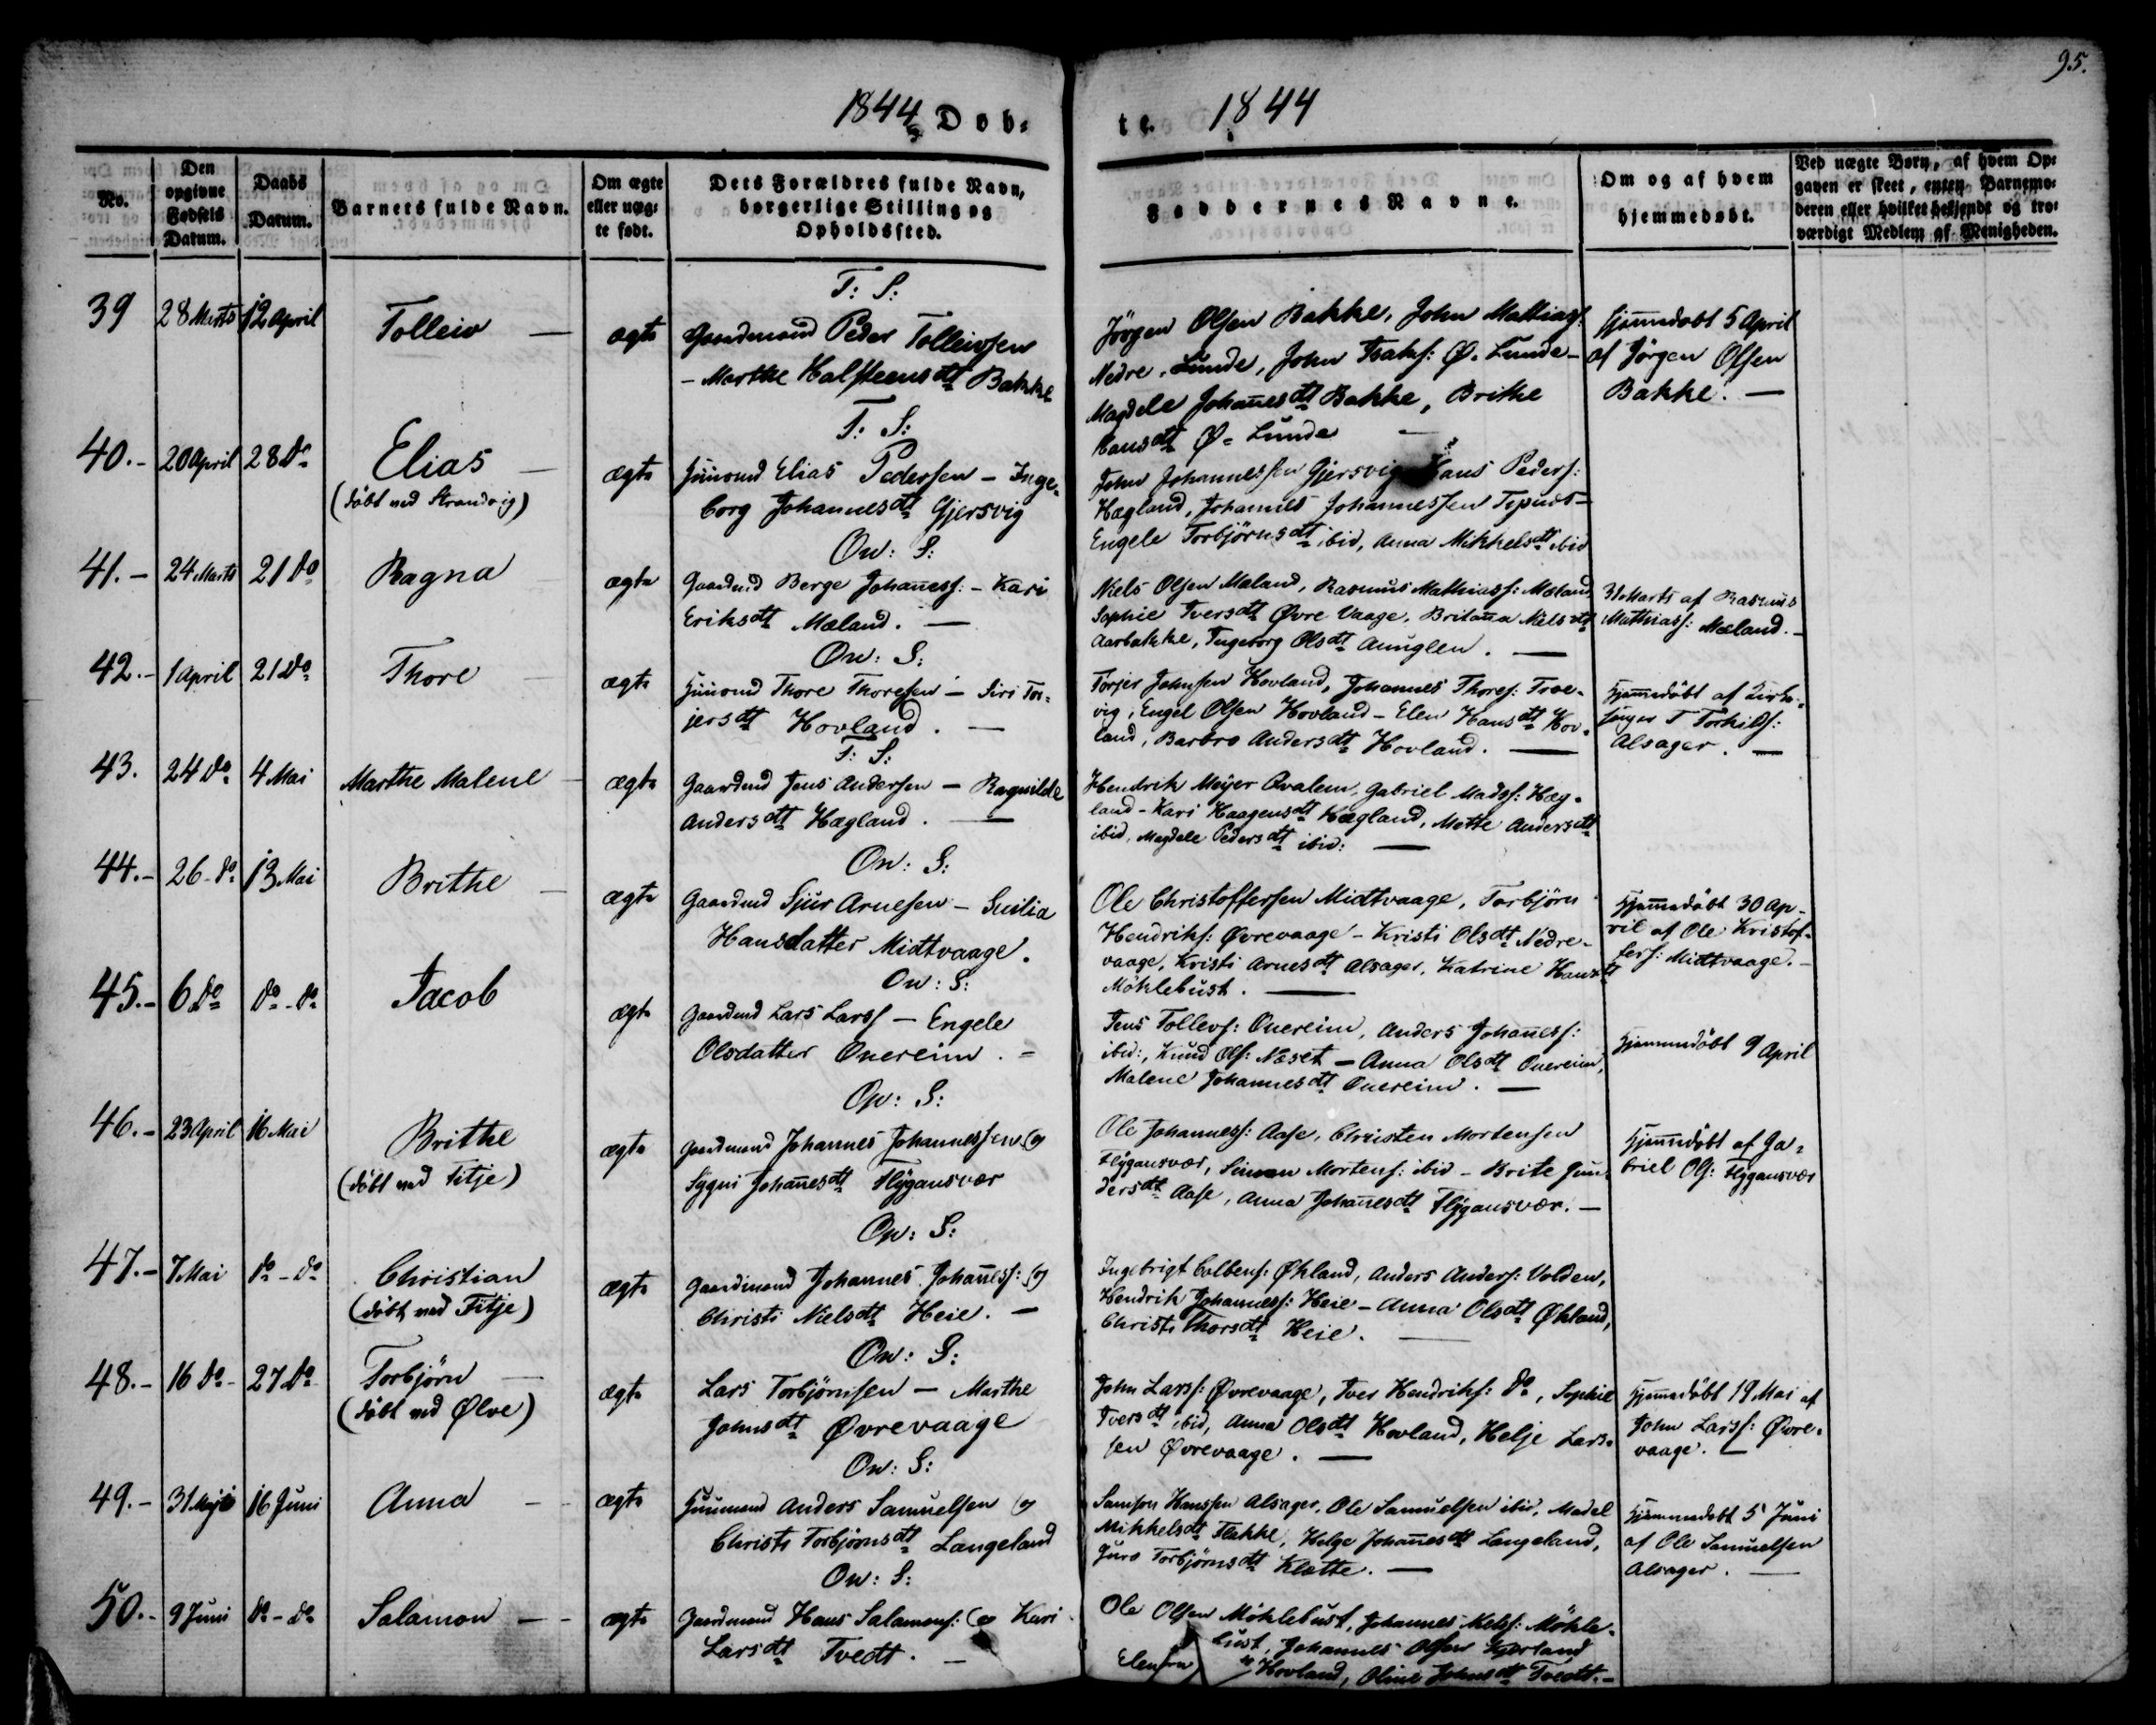 95.
1844 Døb-
te. 1844
No.
Den opgivne Fødsels Datum.
Daabs Datum.
Barnets fulde Navn.
Om ægte eller uæg-
te født.
Dets Forældres fulde Navn,
borgerlige Stilling og
Opholdssted.
Faddernes Navne.
Om og af hvem
hjemmedøbt.
Ved uægte Børn, af hvem Op-
gaven er skeet, enten Barnemo-
deren eller hvilket bekjendt og tro-
værdigt Medlem af Menigheden.
T: S:
39 28 Marts 12 April Tolleiv — ægte Gaardmand Peder Tolleivsen
- Marthe Halsteensdtt Bakke
Jörgen Olsen Bakke, John Mathias:
Nedre Lunde, John Isaks: Ø. Lunde -
Magdele Johan̄esdtt Bakke, Brithe
Hansdtt Ø. Lunde
Hjem̄edøbt 5 April
af Jörgen Olsen
Bakke. —
T: S:
40.- 20 April 28 do Elias — ægte Huusmd Elias Pedersen - Inge-
(døbt ved Strandvig) borg Johannesdtt Gjersvig
John Johannessen Gjersvig Hans Peders:
Hægland, Johannes Johannessen
Engele Torbjörnsdtt ibid, Anna Mikkelsdtt ibid
Ow: S:
41.- 24 Marts 21 do Ragna ægte Gaardmd Berge Johan̄ess: - Kari
Eriksdtt Mæland. —
Niels Olsen Mæland, Rasmus Mathiass: Mæland
Sophie Iversdtt Øvre Vaage, Britan̄a Nielsdtt
Aarbakke, Ingeborg Olsdtt. —
31 Marts af Rasmus
Mathiass: Mæland. -
Ow: S:
42.- 1 April 21 do Thore ægte Huusmd Thore Thoresen - Siri Tor-
jersdtt Hovland. —
Torjer Johnsen Hovland, Johannes Thores:
vig, Engel Olsen Hovland - Elen Hansdtt Hov-
land, Barbro Andersdtt Hovland. —
Hjem̄edøbt af Kirke-
sanger T Torkilds:
Alsager. —
T: S:
43. 24 do 4 Mai Marthe Malene - ægte Gaardmd Jens Andersen - Ragnilde
Andersdtt Hægland. —
Hendrik Meyer Qvalem, Gabriel Madss: Hæg-
land - Kari Haagensdtt Hægland, Mette Andersdtt
ibid, Magdele Pedersdtt ibid: —
Ow: S:
44.- 26 - do 13 Mai Brithe — ægte Gaardmd Sjur Arnesen - Susilia
Hansdatter Midtvaage.
Ole Christoffersen Midtvaage, Torbjörn
Hendriks: Øvrevaage - Kristi Olsdtt Nedre-
vaage, Kristi Arnesdtt Alsager, Katrine Hansdtt
Möklebust. —
Hjem̄edøbt 30 Ap-
ril af Ole Kristof-
fers: Midtvaage. -
Ow: S:
45.- 6 do do - do Jacob ægte Gaardmd Lars Larss - Engele
Olsdatter Onereim. -
Jens Tollevs: Onereim, Anders Johan̄ess:
ibid:, Knud Ols: Næset - Anna Olsdtt Onereim,
Malene Johannesdtt Onereim. —
Hjemmedøbt 9 April
Op: S:
46.- 23 April 16 Mai Brithe ægte Gaardmand Johannes Johannessen og
(døbt ved Fitje) Sygni Johan̄esdtt Flygansvær
Ole Johanness: Aase, Christen Mortensen
Flygansvær, Simon Mortens: ibid - Brite Gun-
dersdtt Aase, Anna Johan̄esdtt Flygansvær. —
Hjem̄edøbt af Ga-
briel Ols: Flygansvær
Op: S:
47.- 7 Mai do - do Christian ægte Gaardmand Johannes Johan̄ess: og
(døbt ved Fitje) Christi Nielsdtt Heie. —
Ingebrigt Colbens: Økland, Anders Anders: Volden,
Hendrik Johanness: Heie - Anna Olsdtt Økland,
Christi Thorsdtt Heie. —
Ow: S:
48.- 16 do - 27 do Torbjörn — ægte Lars Torbjörnsen - Marthe
(døbt ved Ølve) Johnsdtt Øvrevaage
John Larss: Øvrevaage, Iver Hendriks: do, Sophie
Iversdtt ibid, Anna Olsdtt Hovland, Helje Lars-
sen Øvrevaage. —
Hjem̄edøbt 19 Mai af
John Larss: Øvre-
vaage. —
Ow: S:
49.- 31 Maji 16 Juni Anna - - ægte Huusmand Anders Samuelsen og
Christi Torbjörnsdtt Langeland
Samson Hanssen Alsager, Ole Samuelsen ibid, Madel
Mikkelsdtt Flakke, Helge Johan̄esdtt Langeland,
Guro Torbjörnsdtt Klette. —
Hjemmedøbt 5 Juni
af Ole Samuelsen
Alsager. —
Ow: S:
50.- 9 Juni do - do Salamon - - ægte Gaardmand Hans Salamons: og Kari
Larsdtt Tvedt. —
Ole Olsen Möklebust, Johannes Nielss: Mökle-
bust, Johannes Olsen
Hovland, Oline Johnsdtt Tvedt. -